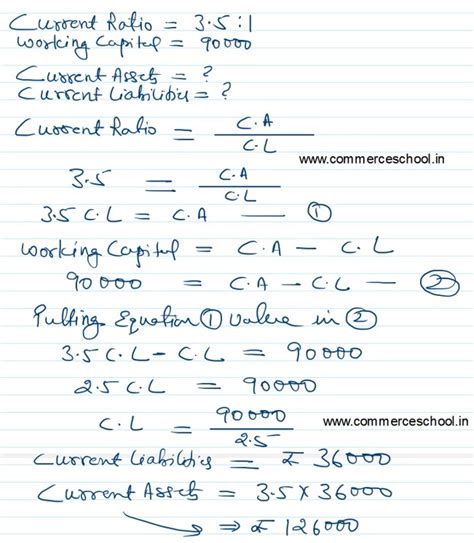 Current Ratio = 3.5:1
Working Capital = 90000
Current Assets = ?
Current Liabilities = ?
Current Ratio = C.A / C.L
www.commerceschool.in
3.5 = C.A / C.L
3.5 C.L = C.A — ①
Working Capital = C.A – C.L
90000 = C.A – C.L — ②
Putting Equation ① Value in ②
3.5 C.L – C.L = 90000
2.5 C.L = 90000
C.L = 90000 / 2.5
www.commerceschool.in
Current Liabilities = ₹ 36000
Current Assets = 3.5 × 36000
⇒ ₹ 126000